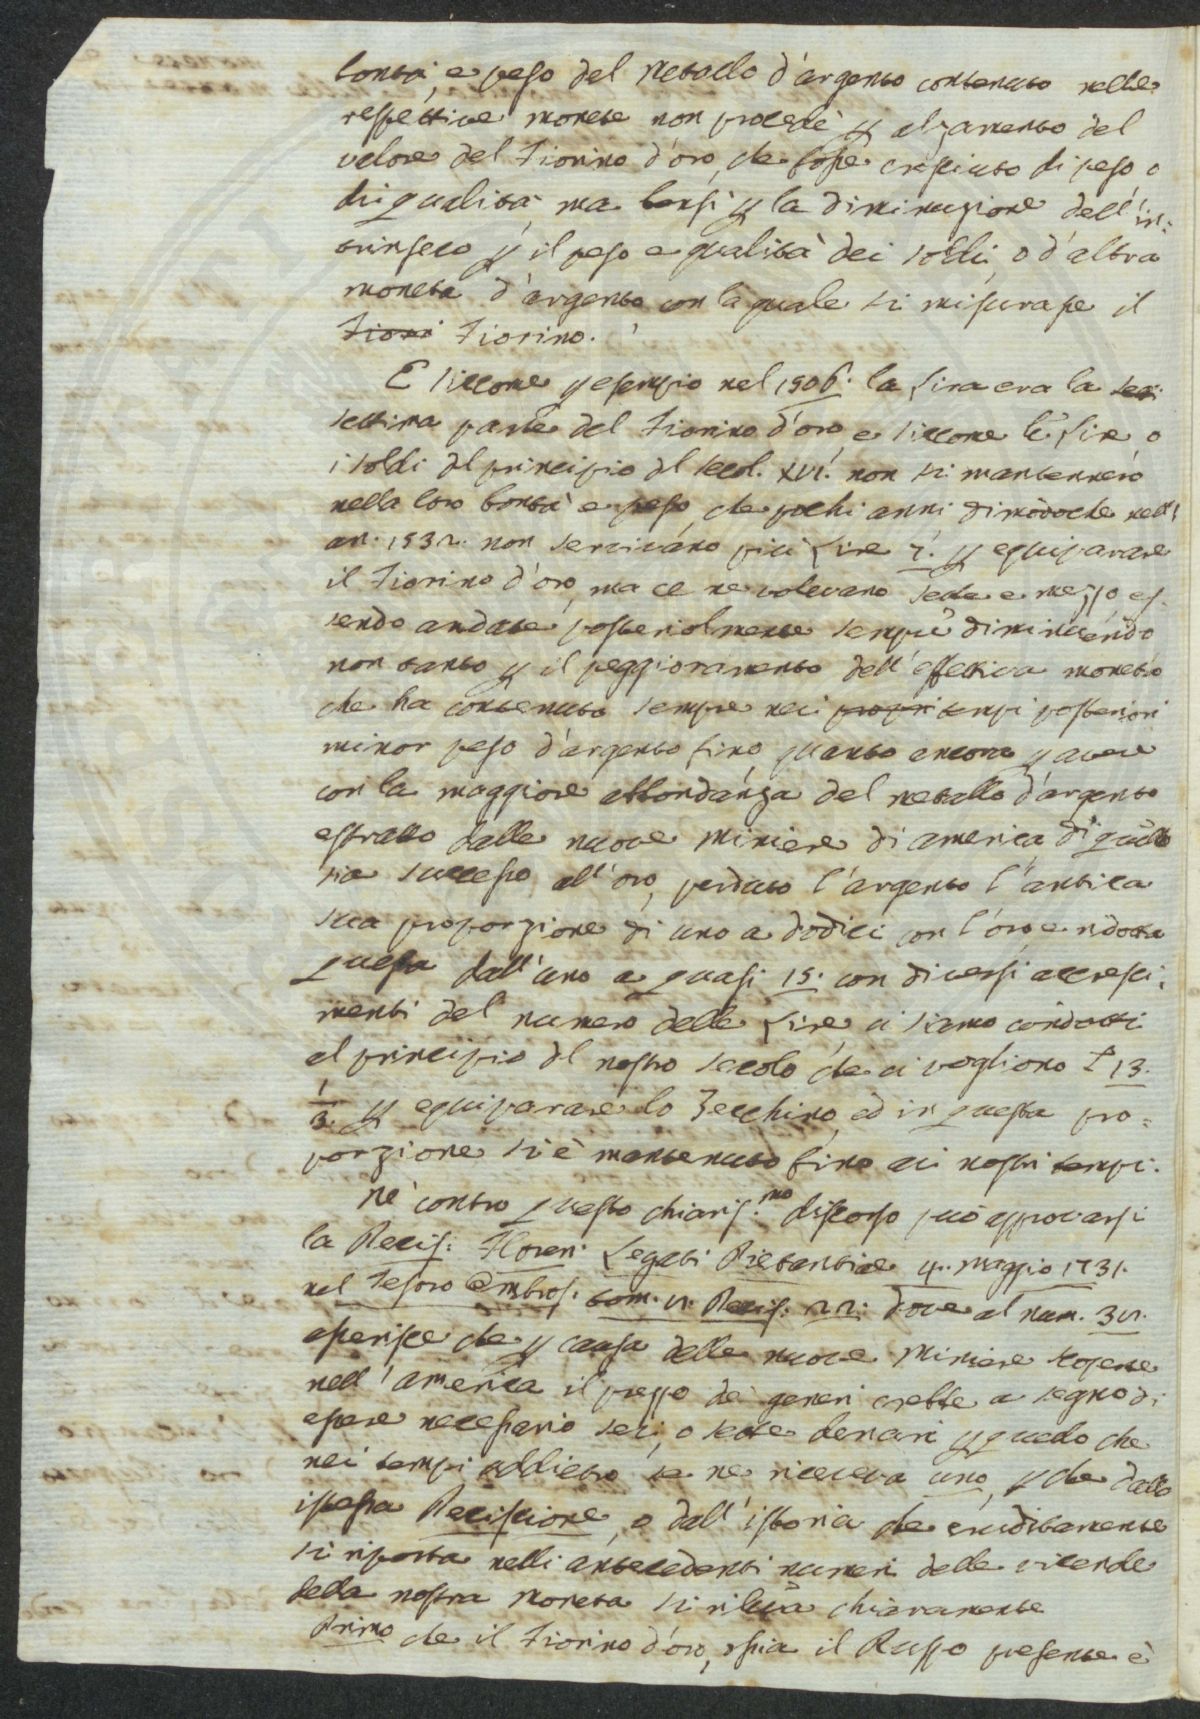 bontà, e peso del Metallo d'argento contenuto nelle
respettive monete non procedè p alzamento del
valore del Fiorino d'oro, che fosse cresciuto di peso o
di qualità ma bensì p la diminuzione dell'in:
trinseco p il peso e qualità dei soldi, o d'altra
moneta d'argento con la quale si misurasse il
Fiori Fiorino.
E siccome p esempio nel 1506. la Lira era la set
settima parte del Fiorino d'oro, e siccome le Lire o
i soldi al principio del secol. XVI. non si mantennero
nella loro bontà e peso, che pochi anni dimodoche nell'
an. 1532. non servivano più Lire 7. p equiparare
il Fiorino d'oro, ma ce ne volevano sette e mezzo es-
sendo andate posteriolmente sempre diminuendo
non tanto p il peggioramento dell'effettiva moneta
che ha contenuto sempre nei propri tempi posteriori
minor peso d'argento fino, quanto ancora p avere
con la maggiore abbondanza del metallo d'argento
estratto dalle nuove Miniere di america, di quello
sia successo all'oro, perduto l'argento l'antica
sua proporzione di uno a dodici con l'oro, e ridotta
questa dall'uno a quasi 15. con diversi accresci:
menti del numero delle Lire, ci siamo condotti
al principio del nostro secolo che ci vogliono £ 13.
1/3. p equiparare lo Zecchino, ed in questa pro=
porzione si è mantenuto fino ai nostri tempi.
Nè contro questo chiaris.mo discorso può approvarsi
la Decis: Floren: Legati Pietantiae 4. Maggio 1731.
nel Tesoro Ombros. tom. VI. Decis: 22: dove al num. 31.
asserisce che p causa delle nuove Miniere scoperte
nell'america il prezzo de' generi crebbe a segno di
essere necessario sei, o sette denari p quello che
nei tempi addietro se ne riceveva uno, p che dalla
istessa Decisione, o dall'istoria che eruditamente
si riporta nelli antecedenti numeri delle vicende
della nostra Moneta si rileva chiaramente
Primo che il Fiorino d'oro, ossia il Ruspo presente è